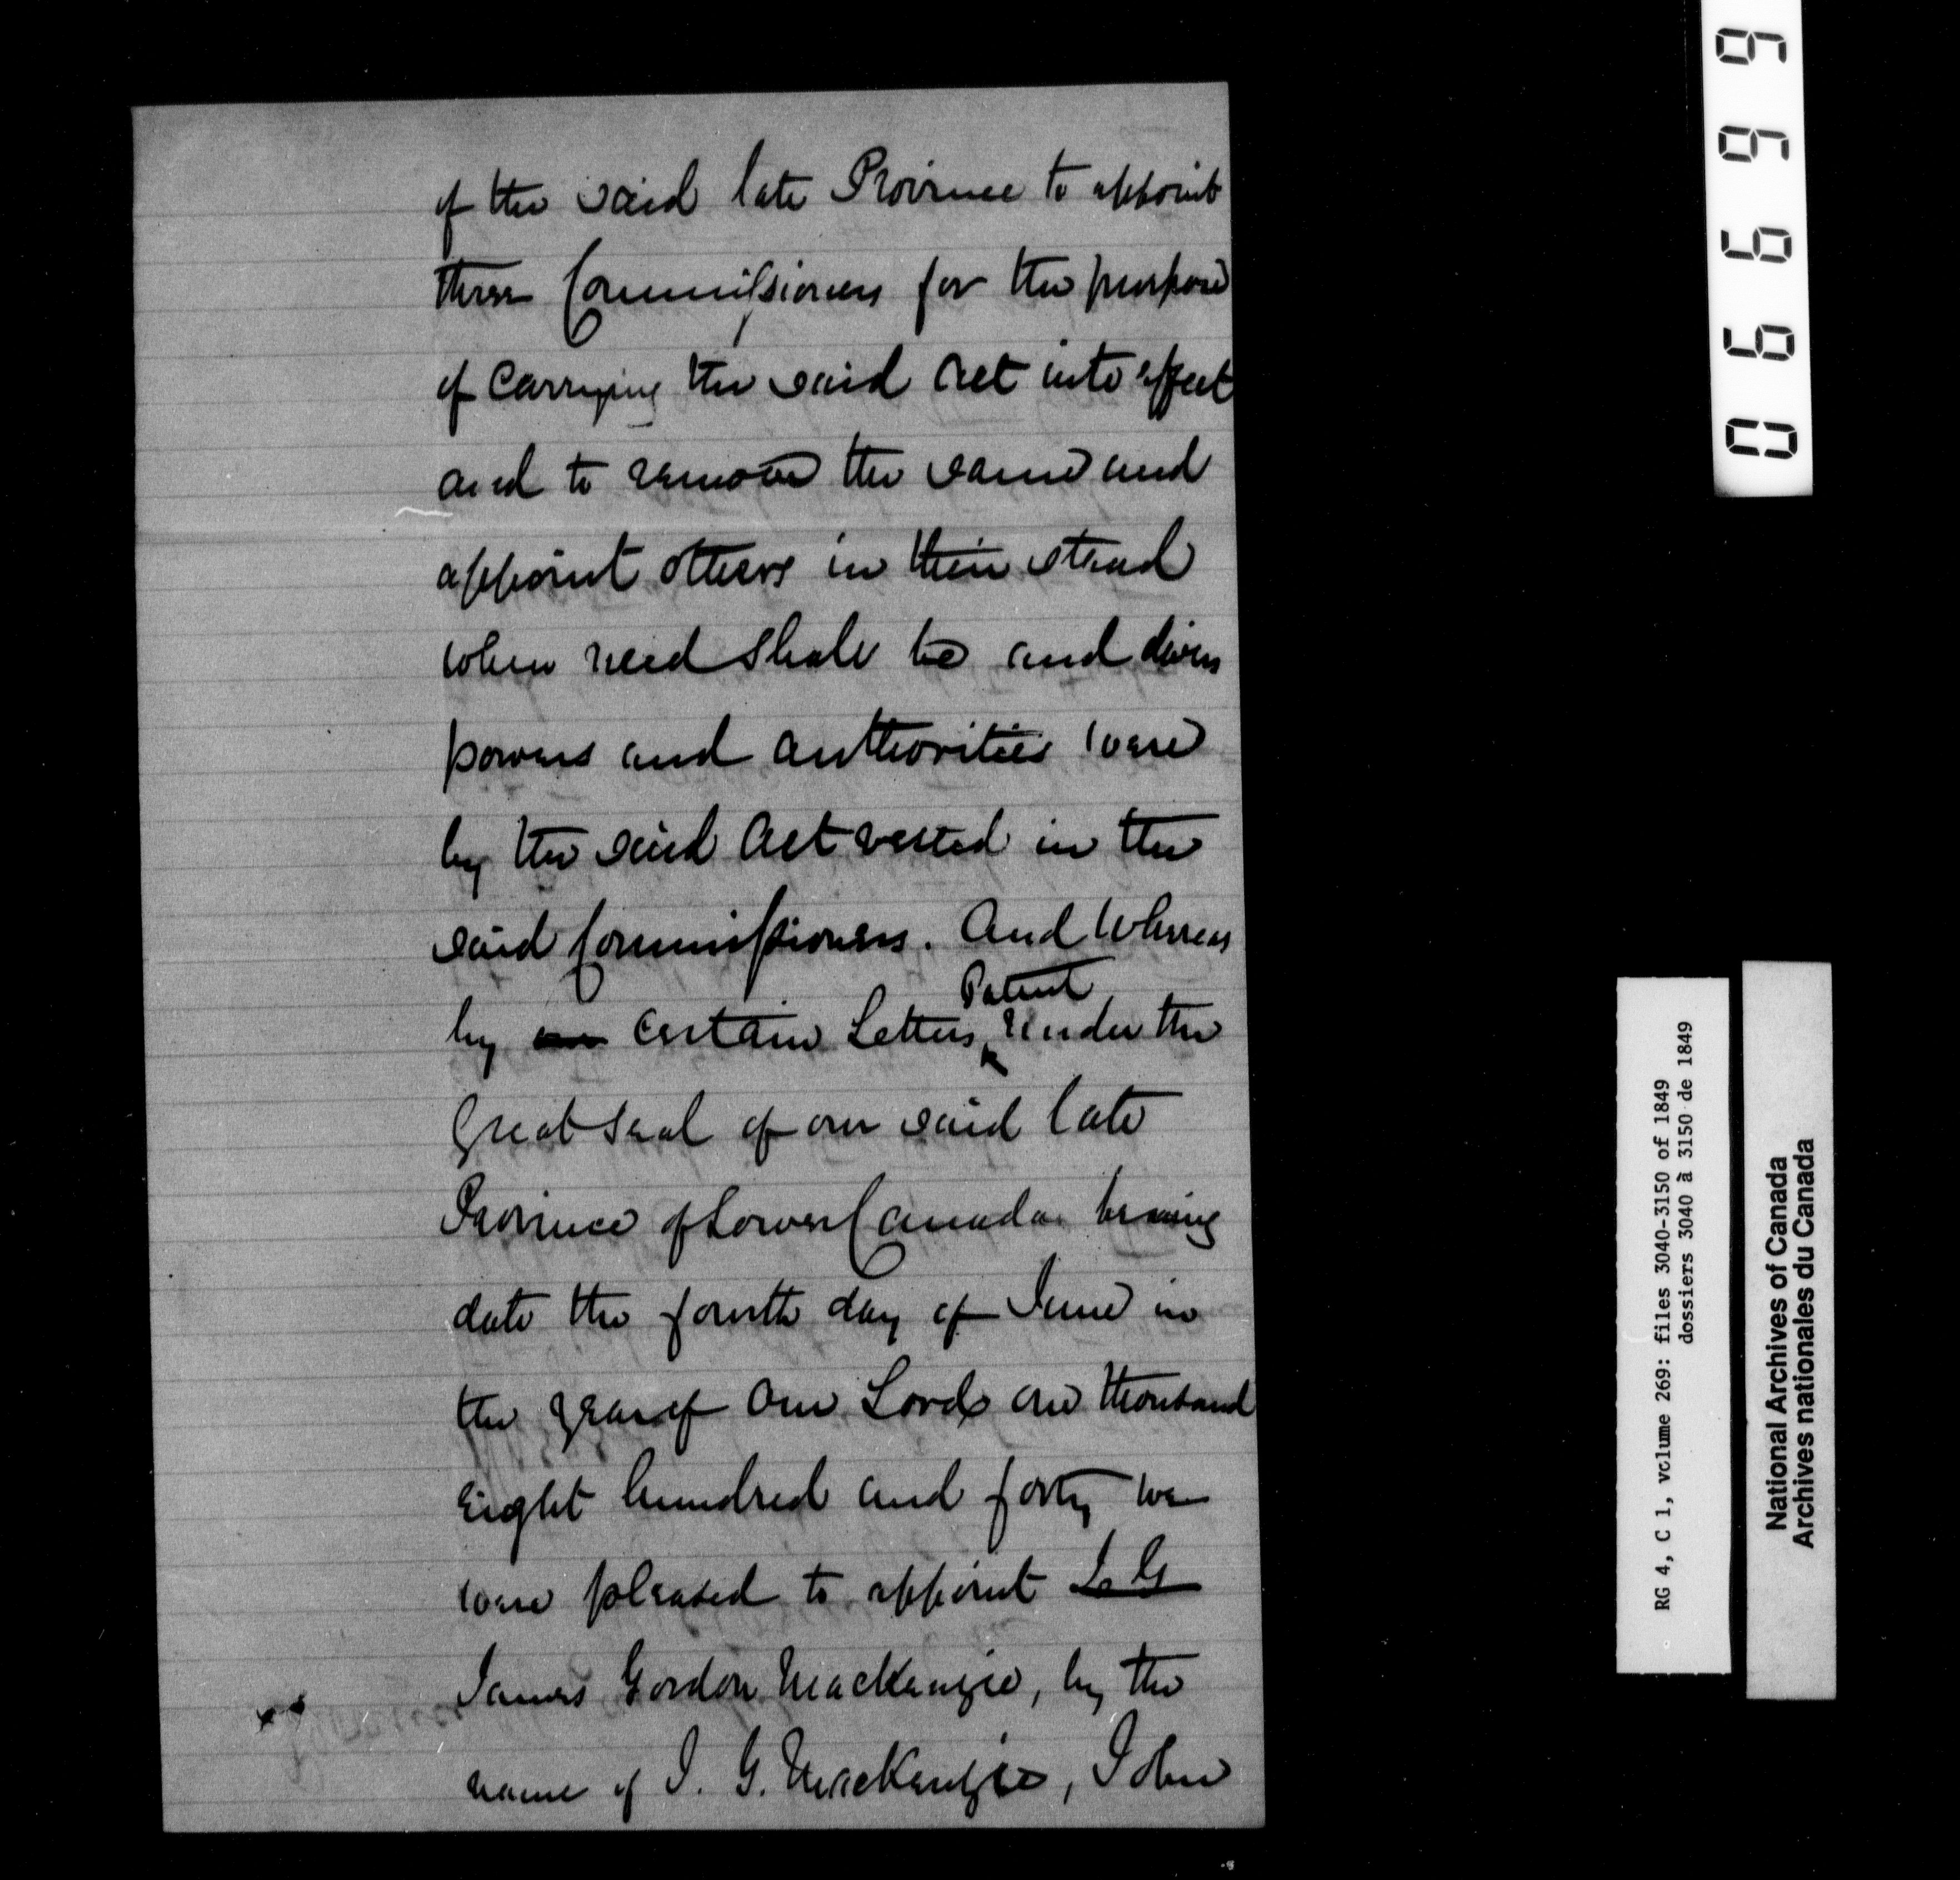 of the said late Province to appoint
three Commissioners for the purpose
of Carrying the said Act into effect
and to remove the same and
appoint others in their stead
when need shall be and divers
powers and authorities were
by the said Act vested in the
said Commissioners. And Whereas
Patent
by certain Letters under the
Great Seal of our said late
Province of Lower Canada bearing
date the fourth day of June in
the year of Our Lord one thousand
Eight hundred and forty we
were pleased to appoint
James Gordon MacKenzie, by the
name of J. G. MacKenzie, John
06699
RG 4, C 1, volume 269: files 3040-3150 of 1849
dossiers 3040 à 3150 de 1849
National Archives of Canada
Archives nationales du Canada